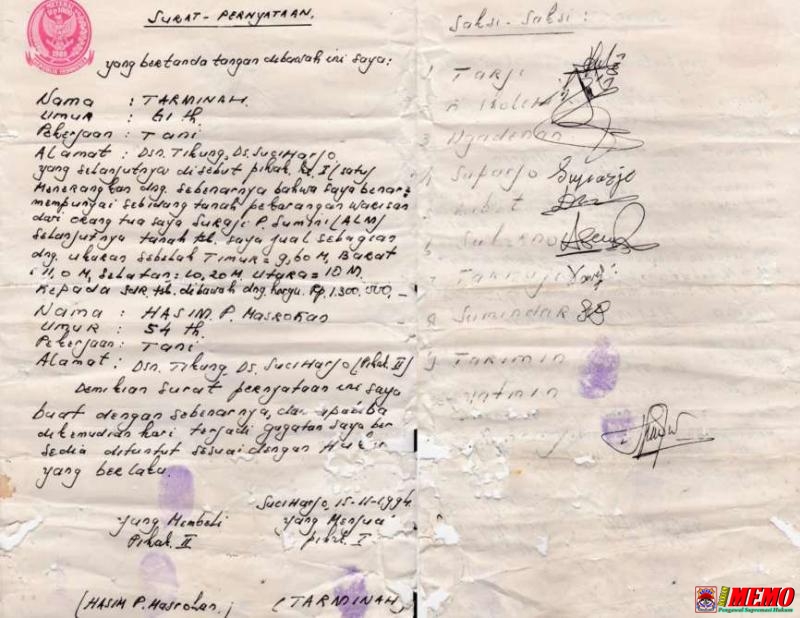 SURAT - PERNYATAAN.
yang bertanda tangan dibawah ini saya:
Nama : TARMINAH.
Umur : 61 th
Pekerjaan : Tani
Alamat : Dsn. Tikung, Ds. SuciHarjo
yang selanjutnya disebut pihak ke I (satu)
Menerangkan dng. sebenarnya bahwa saya benar2
mempunyai sebidang tanah pekarangan warisan
dari orang tua saya Suraji P. Sumini (ALM)
Selanjutnya tanah tsb. saya jual sebagian
dng. ukuran sebelah Timur = 9,60 M, Barat
11,0 M, Selatan = 10,20 M, Utara = 10 M.
Kepada sdr. tsb. dibawah dng. harga Rp. 1.300.000,-
Nama : HASIM. P. Masrokan
Umur : 54 th.
Pekerjaan : Tani
Alamat : Dsn. Tikung, Ds. SuciHarjo (Pihak II)
Demikian surat pernyataan ini saya
buat dengan sebenarnya, dan apabila
dikemudian hari terjadi gugatan saya ber
sedia dituntut sesuai dengan
yang berlaku.
SuciHarjo, 15-11-1994
yang Membeli yang Menjual
Pihak II pihak I
(HASIM P. Masrokan) (TARMINAH)
Saksi - Saksi :
1 Tarji
3 Ngadenan
4 Suparjo Suparjo
8 Sumindar
9 Tarimin
MEMO
Pengawal Supremasi Hukum